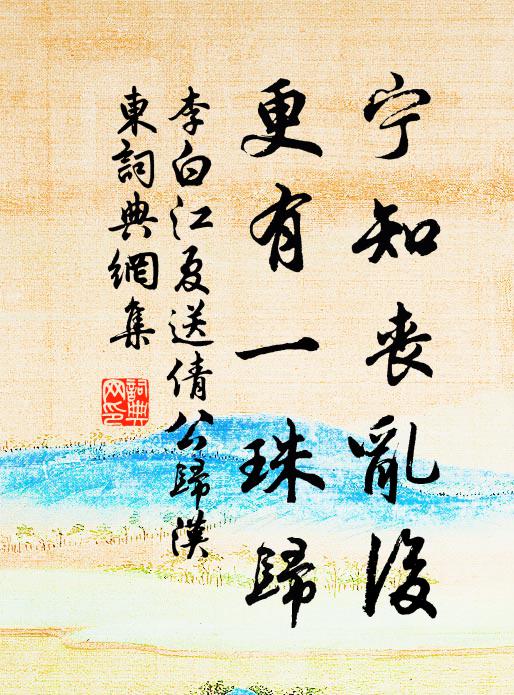 宁知丧亂後
更有一珠歸
李白江夏送倩公歸漢
東詞典網集
詞典
网印